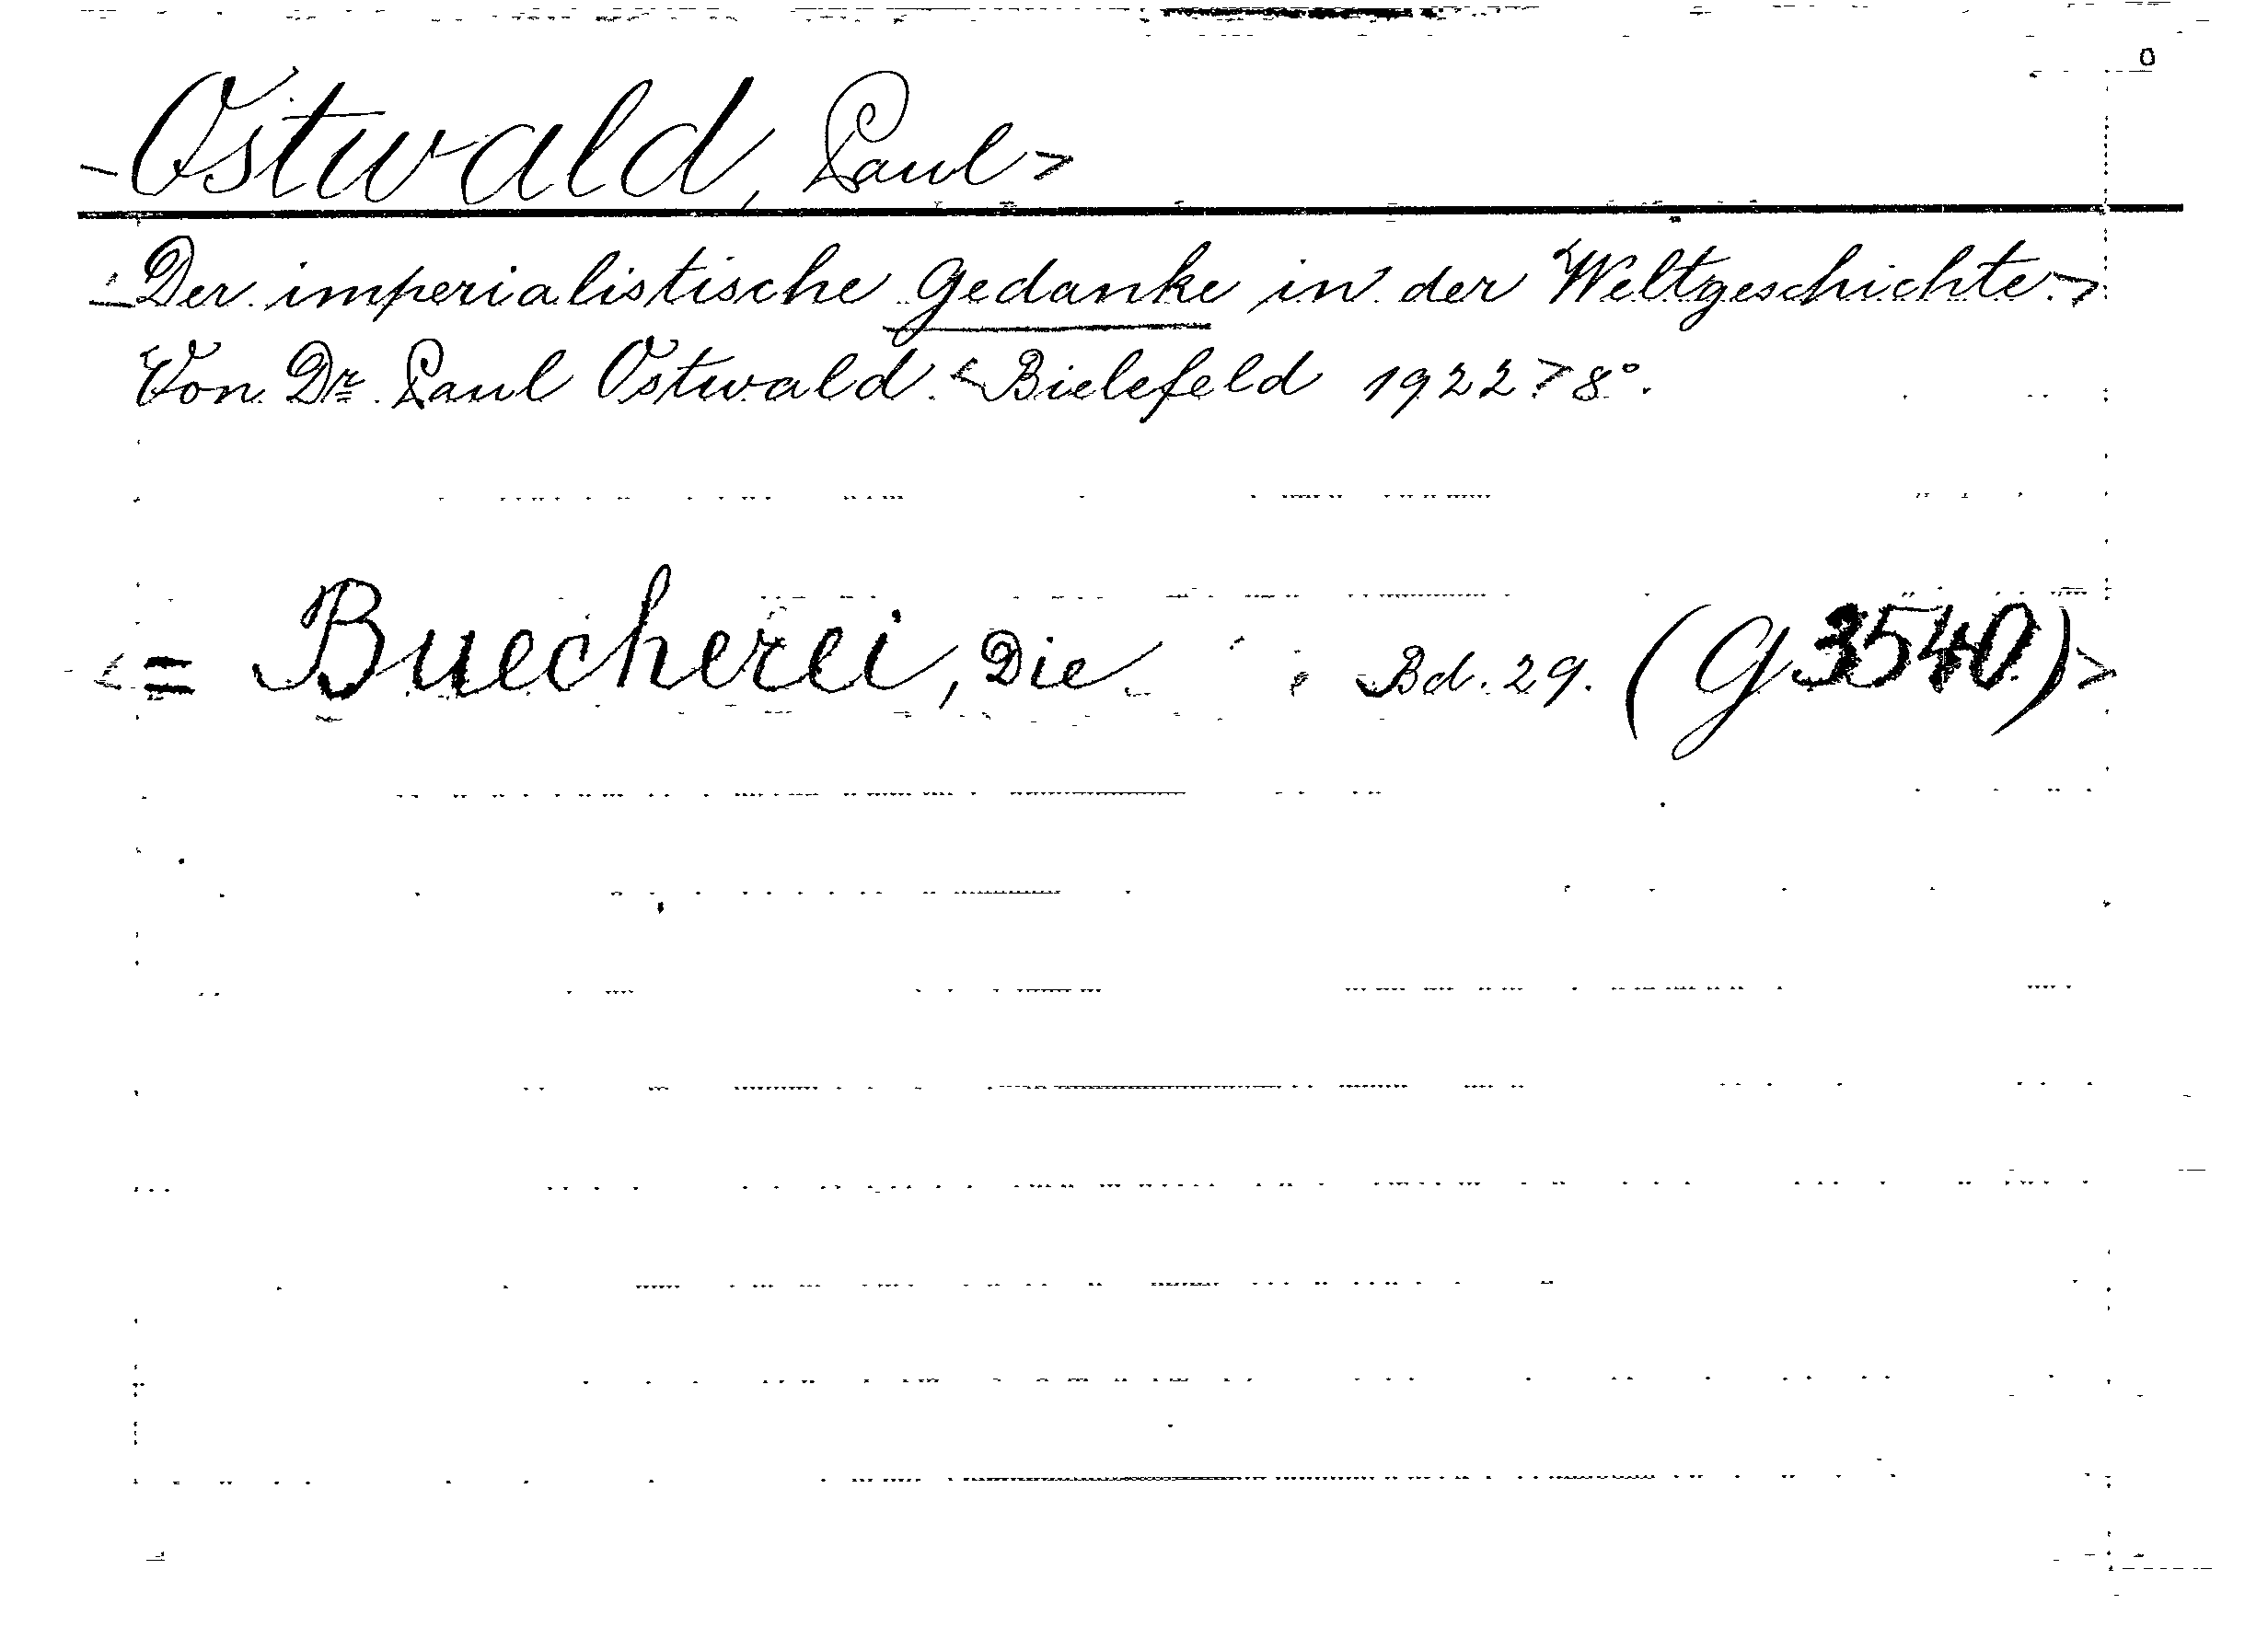 Ostwald, Paul>
Der imperialistische Gedanke in der Weltgeschichte.>
Von Dr. Paul Ostwald. <Bielefeld 1922> 8°.
<= Buecherei, Die Bd. 29. (G 3540)>